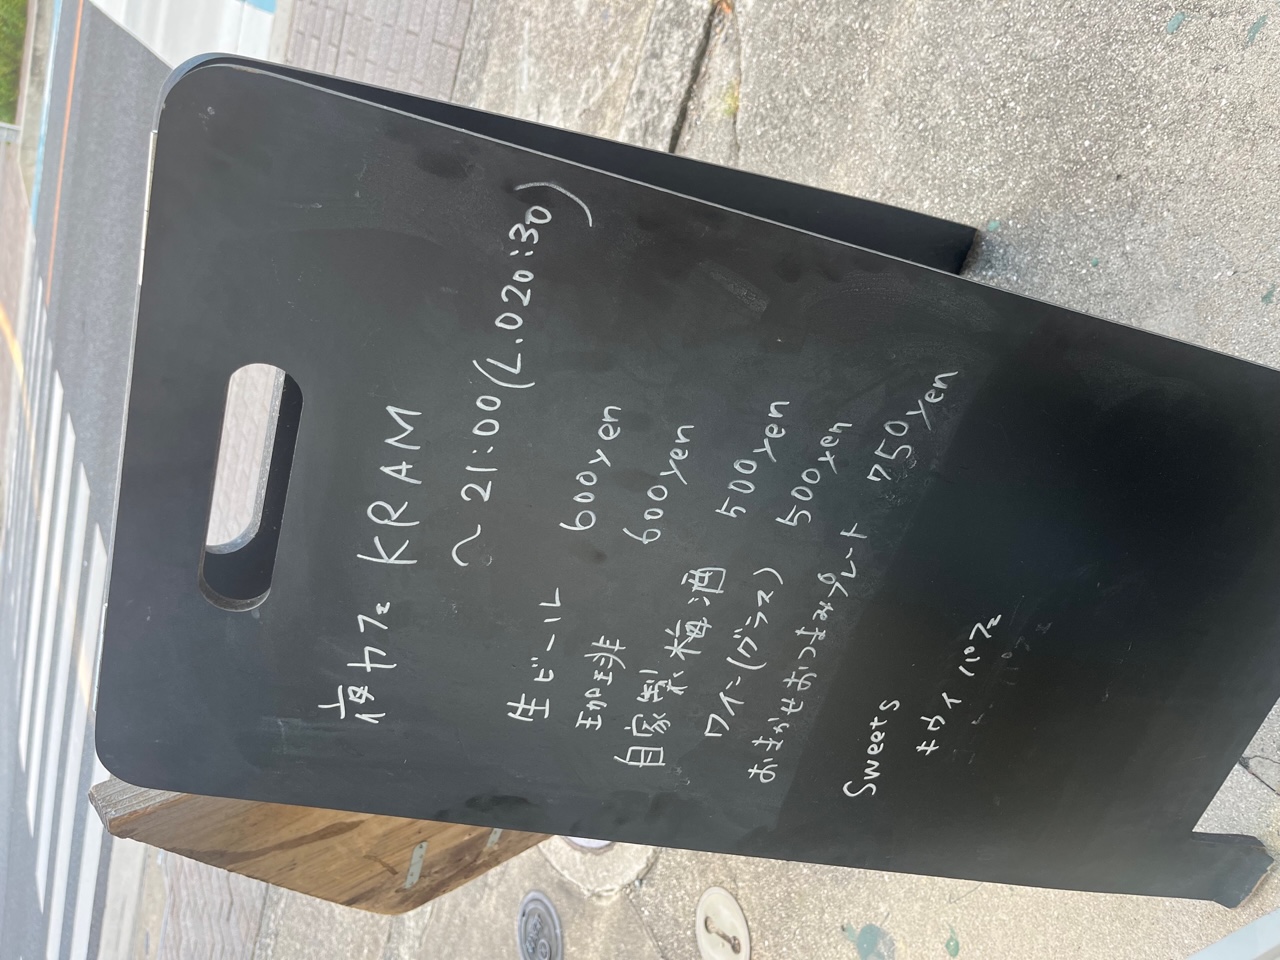 夜カフェ KRAM
〜21:00(L.O20:30)
生ビール 600yen
珈琲 600yen
自家製梅酒 500yen
ワイン(グラス) 500yen
おまかせおつまみプレート 750yen
Sweets
キウイパフェ